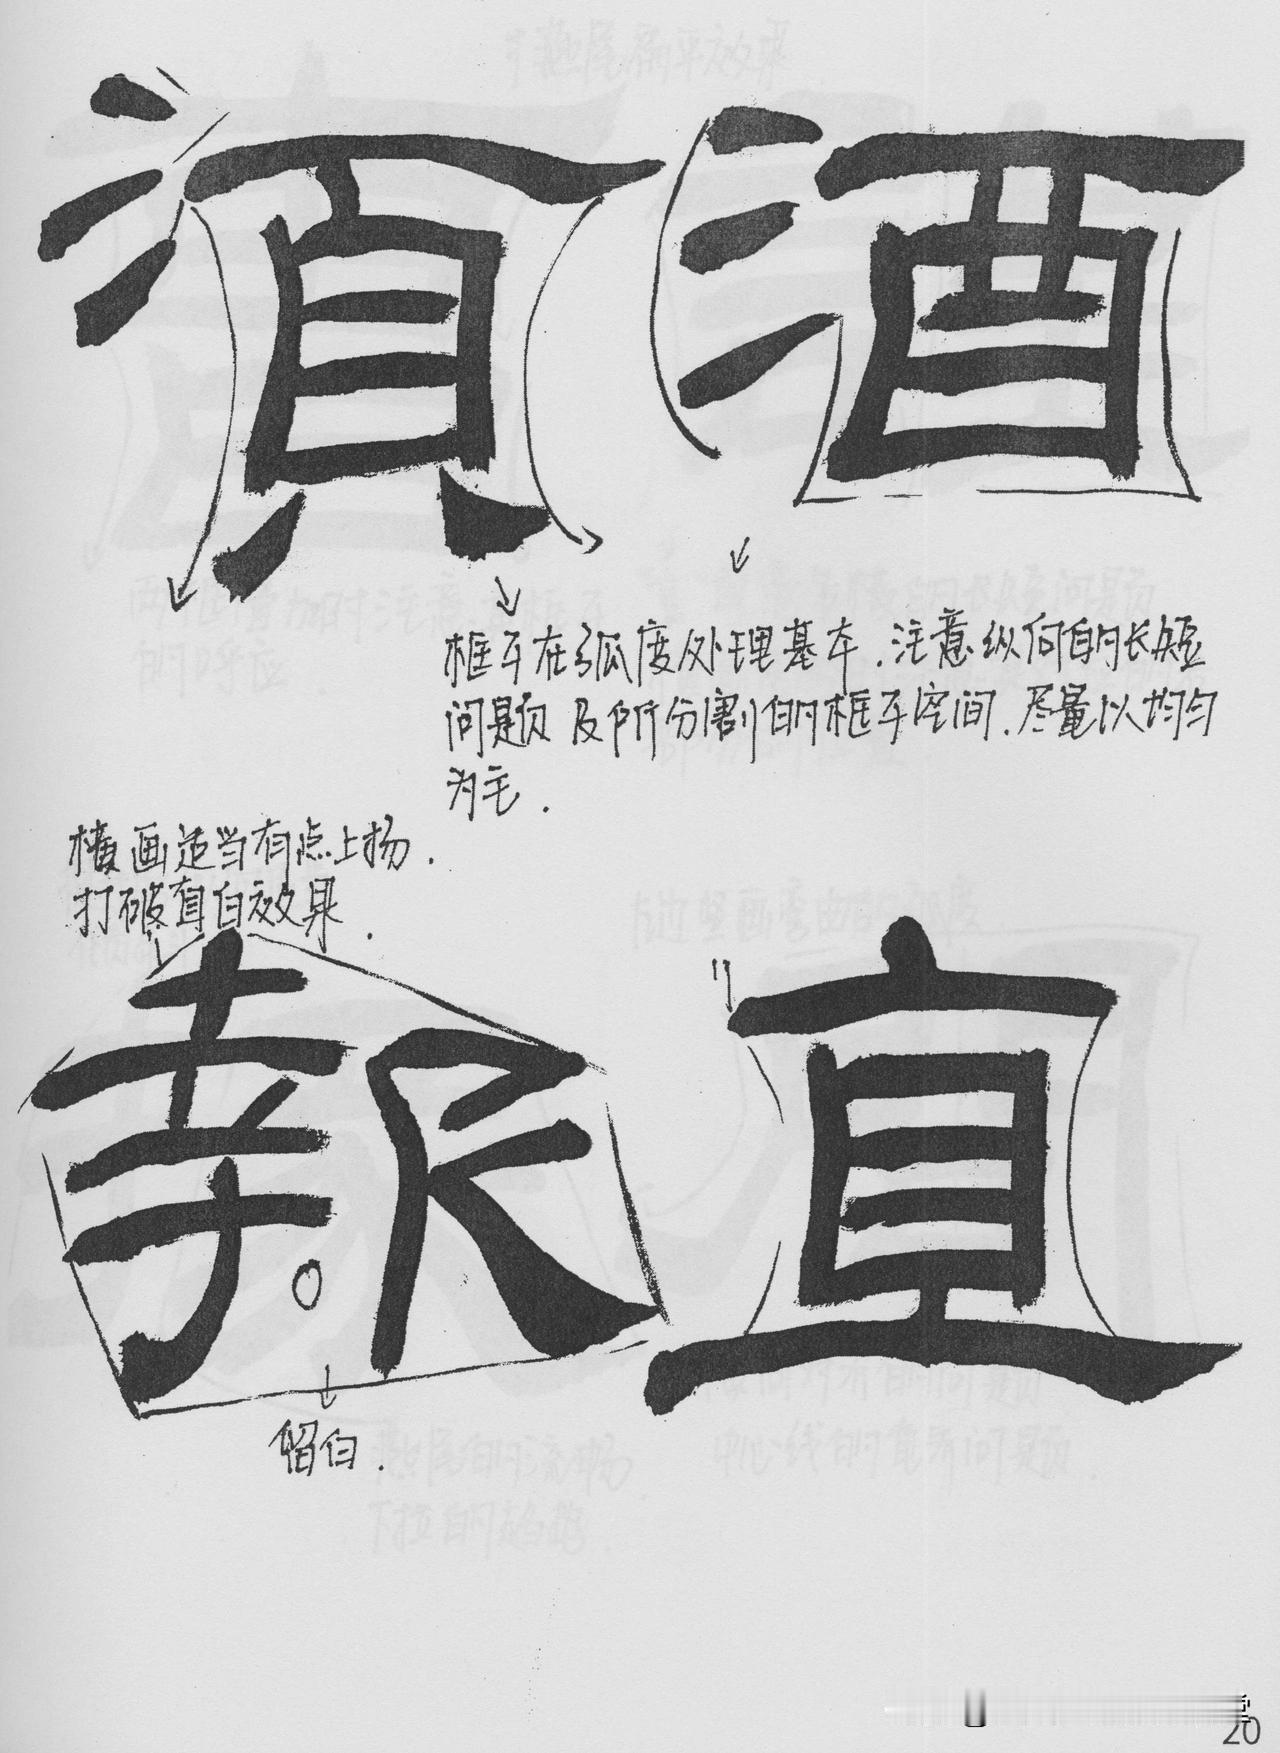 須 酒
框子在弧度处理基本.注意纵向的长短
问题及所分割的框子空间.尽量以均匀
为主.
横画适当有点上扬.
打破直白效果.
報 直
留白.
20